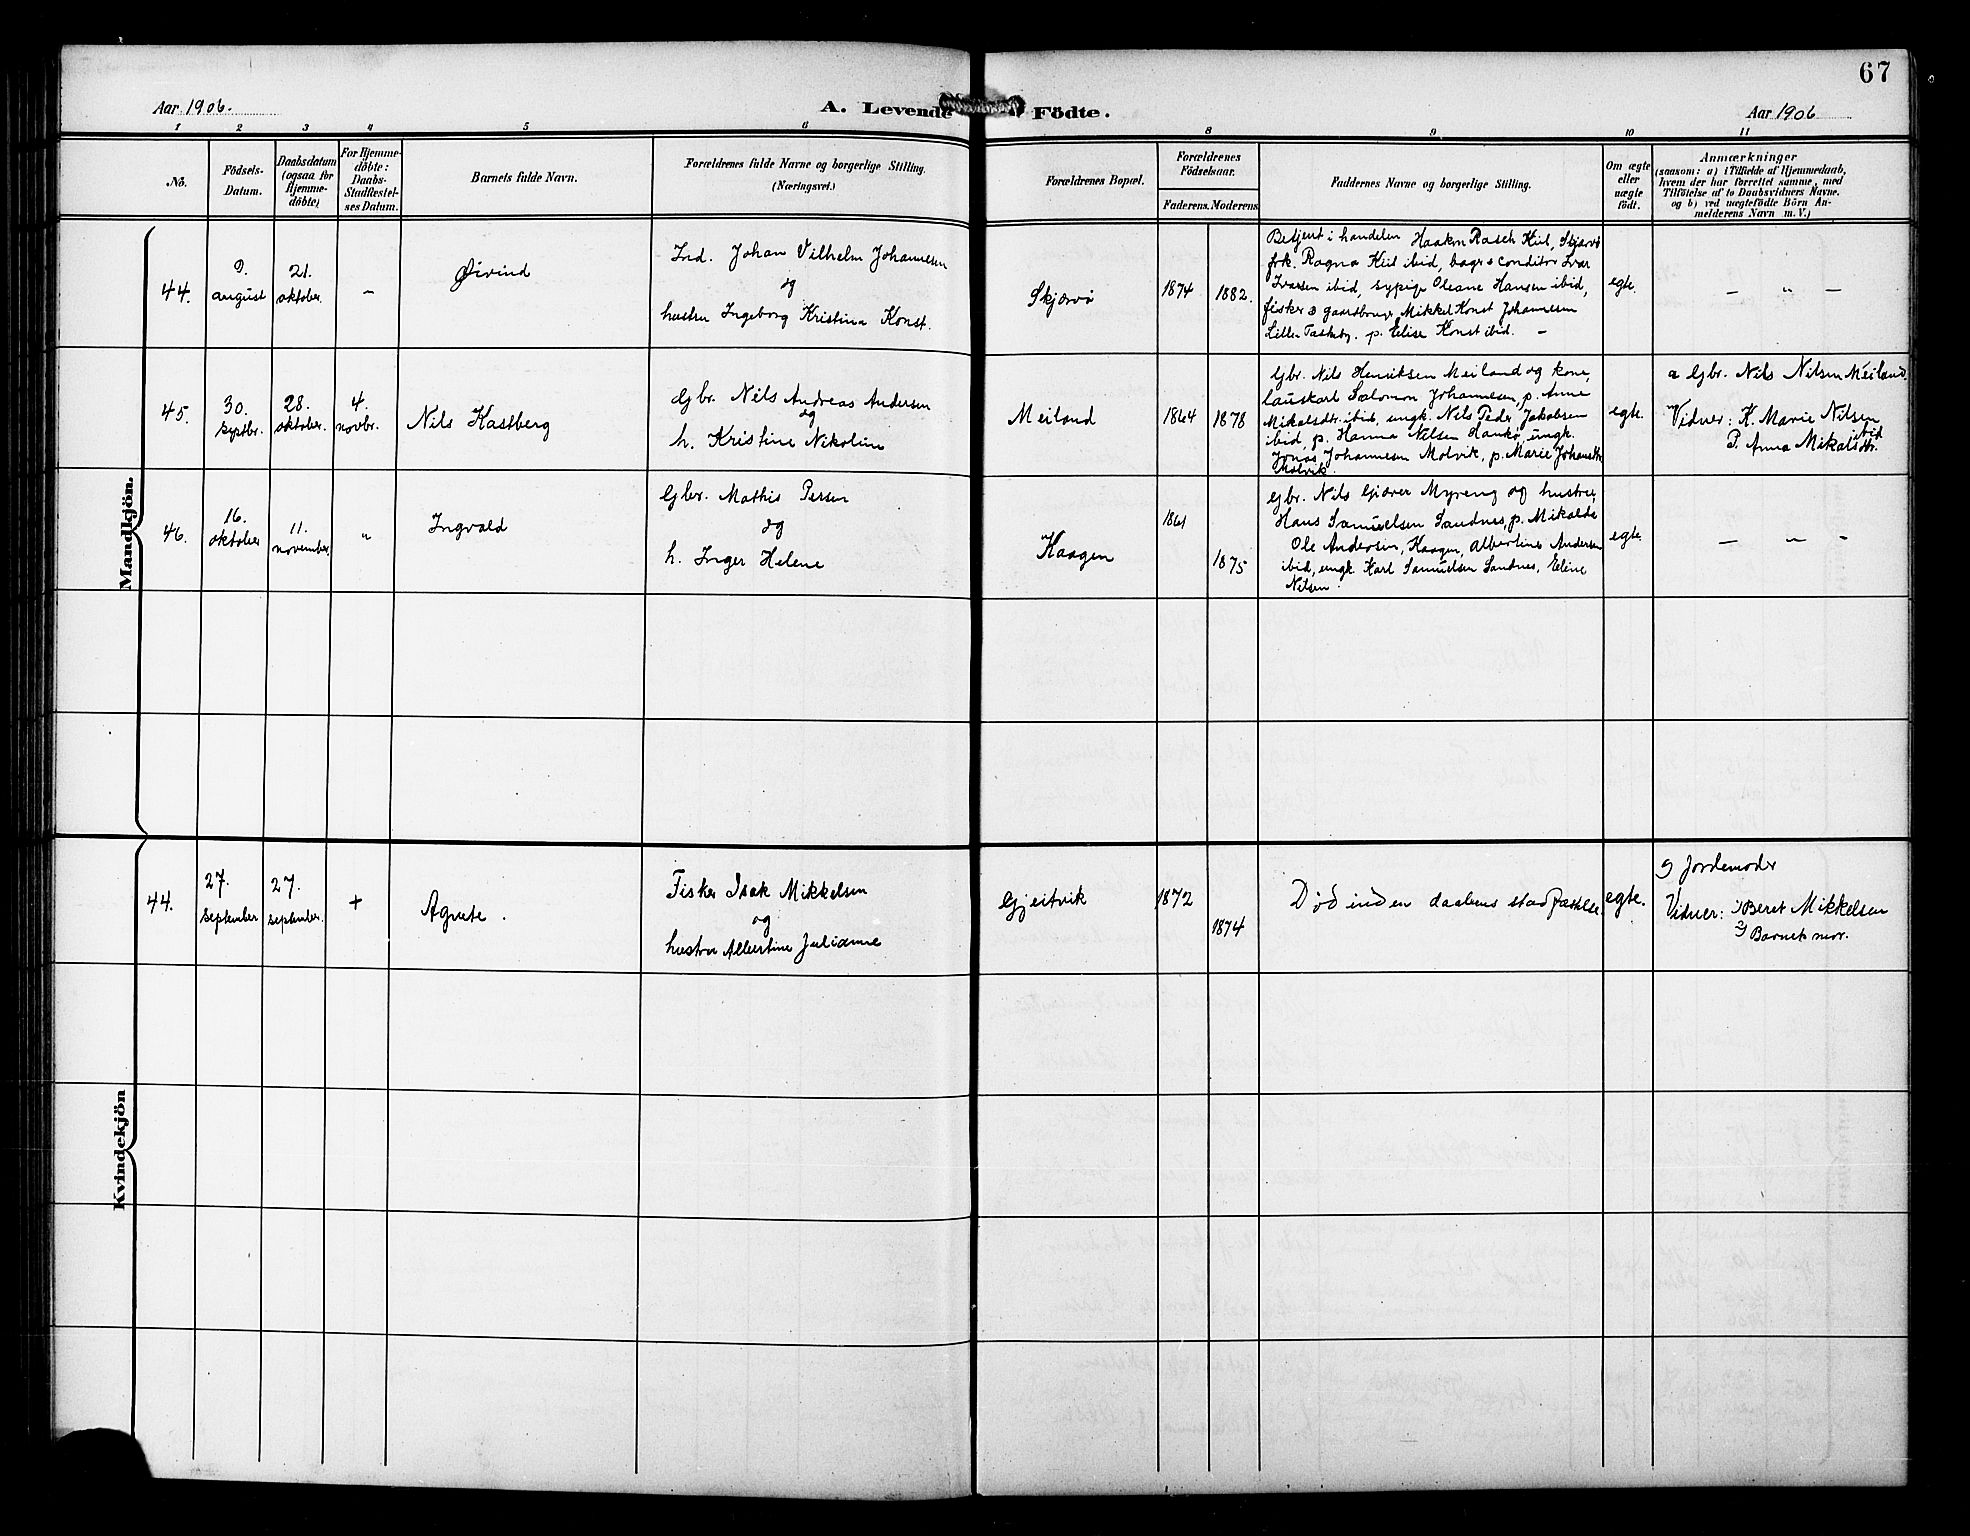 67
Aar 1906.
A. Levende Födte.
Aar 1906
1 2 3 4 5 6 8 9 10 11
No.
Födsels-
Datum.
Daabsdatum
(ogsaa for
Hjemme-
döbte)
For Hjemme-
döbte:
Daabs-
Stadfæstel-
ses Datum.
Barnets fulde Navn.
Forældrenes fulde Navne og borgerlige Stilling.
(Næringsvei.)
Forældrenes Bopæl.
Forældrenes
Födselsaar.
Faderens. Moderens.
Faddernes Navne og borgerlige Stilling.
Om ægte
eller
uægte
födt.
Anmærkninger
(saasom: a) i Tilfælde af Hjemmedaab,
hvem der har forrettet samme, med
Tilföielse af to Daabsvidners Navne.
og b) ved uægtefödte Börn An-
melderens Navn m. V.)
Mandkjön.
44.
9.
august
21.
oktober.
–
Øivind
Ind. Johan Vilhelm Johannesen
og
hustru Ingeborg Kristina Konst.
Skjærvø
1874
1882.
Betjent i handelen Haakon Rasch Kiil, Skjærvø
frk. Ragna Kiil ibid, bager & conditor Ivar
Ivarsen ibid, sypige Oleane Hansen ibid,
fisker & gaardbruger Mikkel Konst Johannesen
Lille Taskeby. p. Elise Konst ibid. –
egte.
– " –
45.
30.
septbr.
28.
oktober.
4.
novbr.
Nils Kastberg
Gbr. Nils Andreas Andersen
og
h. Kristine Nikoline
Meiland
1864
1878
Gbr. Nils Henriksen Meiland og kone,
lauskarl Salomon Johannesen, p. Anne
Mikalsdtr. ibid, ungk. Nils Peder Jakobsen
ibid, p. Hanna Nilsen Haukø, ungk.
Jonas Johannesen Molvik, p. Marie Johansdtr.
Molvik.
egte.
a Gbr. Nils Nilsen Meiland.
Vidner: K. Marie Nilsen
ibid
P. Anna Mikalsdtr.
46.
16.
oktober
11.
november.
"
Ingvald
Gbr. Mathis Persen
og
h. Inger Helene
Kaagen
1861
1875
Gbr. Nils Giæver Myreng og hustru,
Hans Samuelsen Sandnes, p. Mikalde
Ole Andersen, Kaagen, Albertine Andersen
ibid, ungk Karl Samuelsen Sandnes, Eline
Nilsen.
egte.
– " –
Kvindekjön
44.
27.
september
27.
september.
+
Agnete.
Fisker Isak Mikkelsen
og
hustru Albertine Julianne
Gjeitvik
1872
1874
Død inden daabens stadfæstelse.
egte.
a) Jordemoder
Vidner: 1) Beret Mikkelsen
2) Barnets mor.